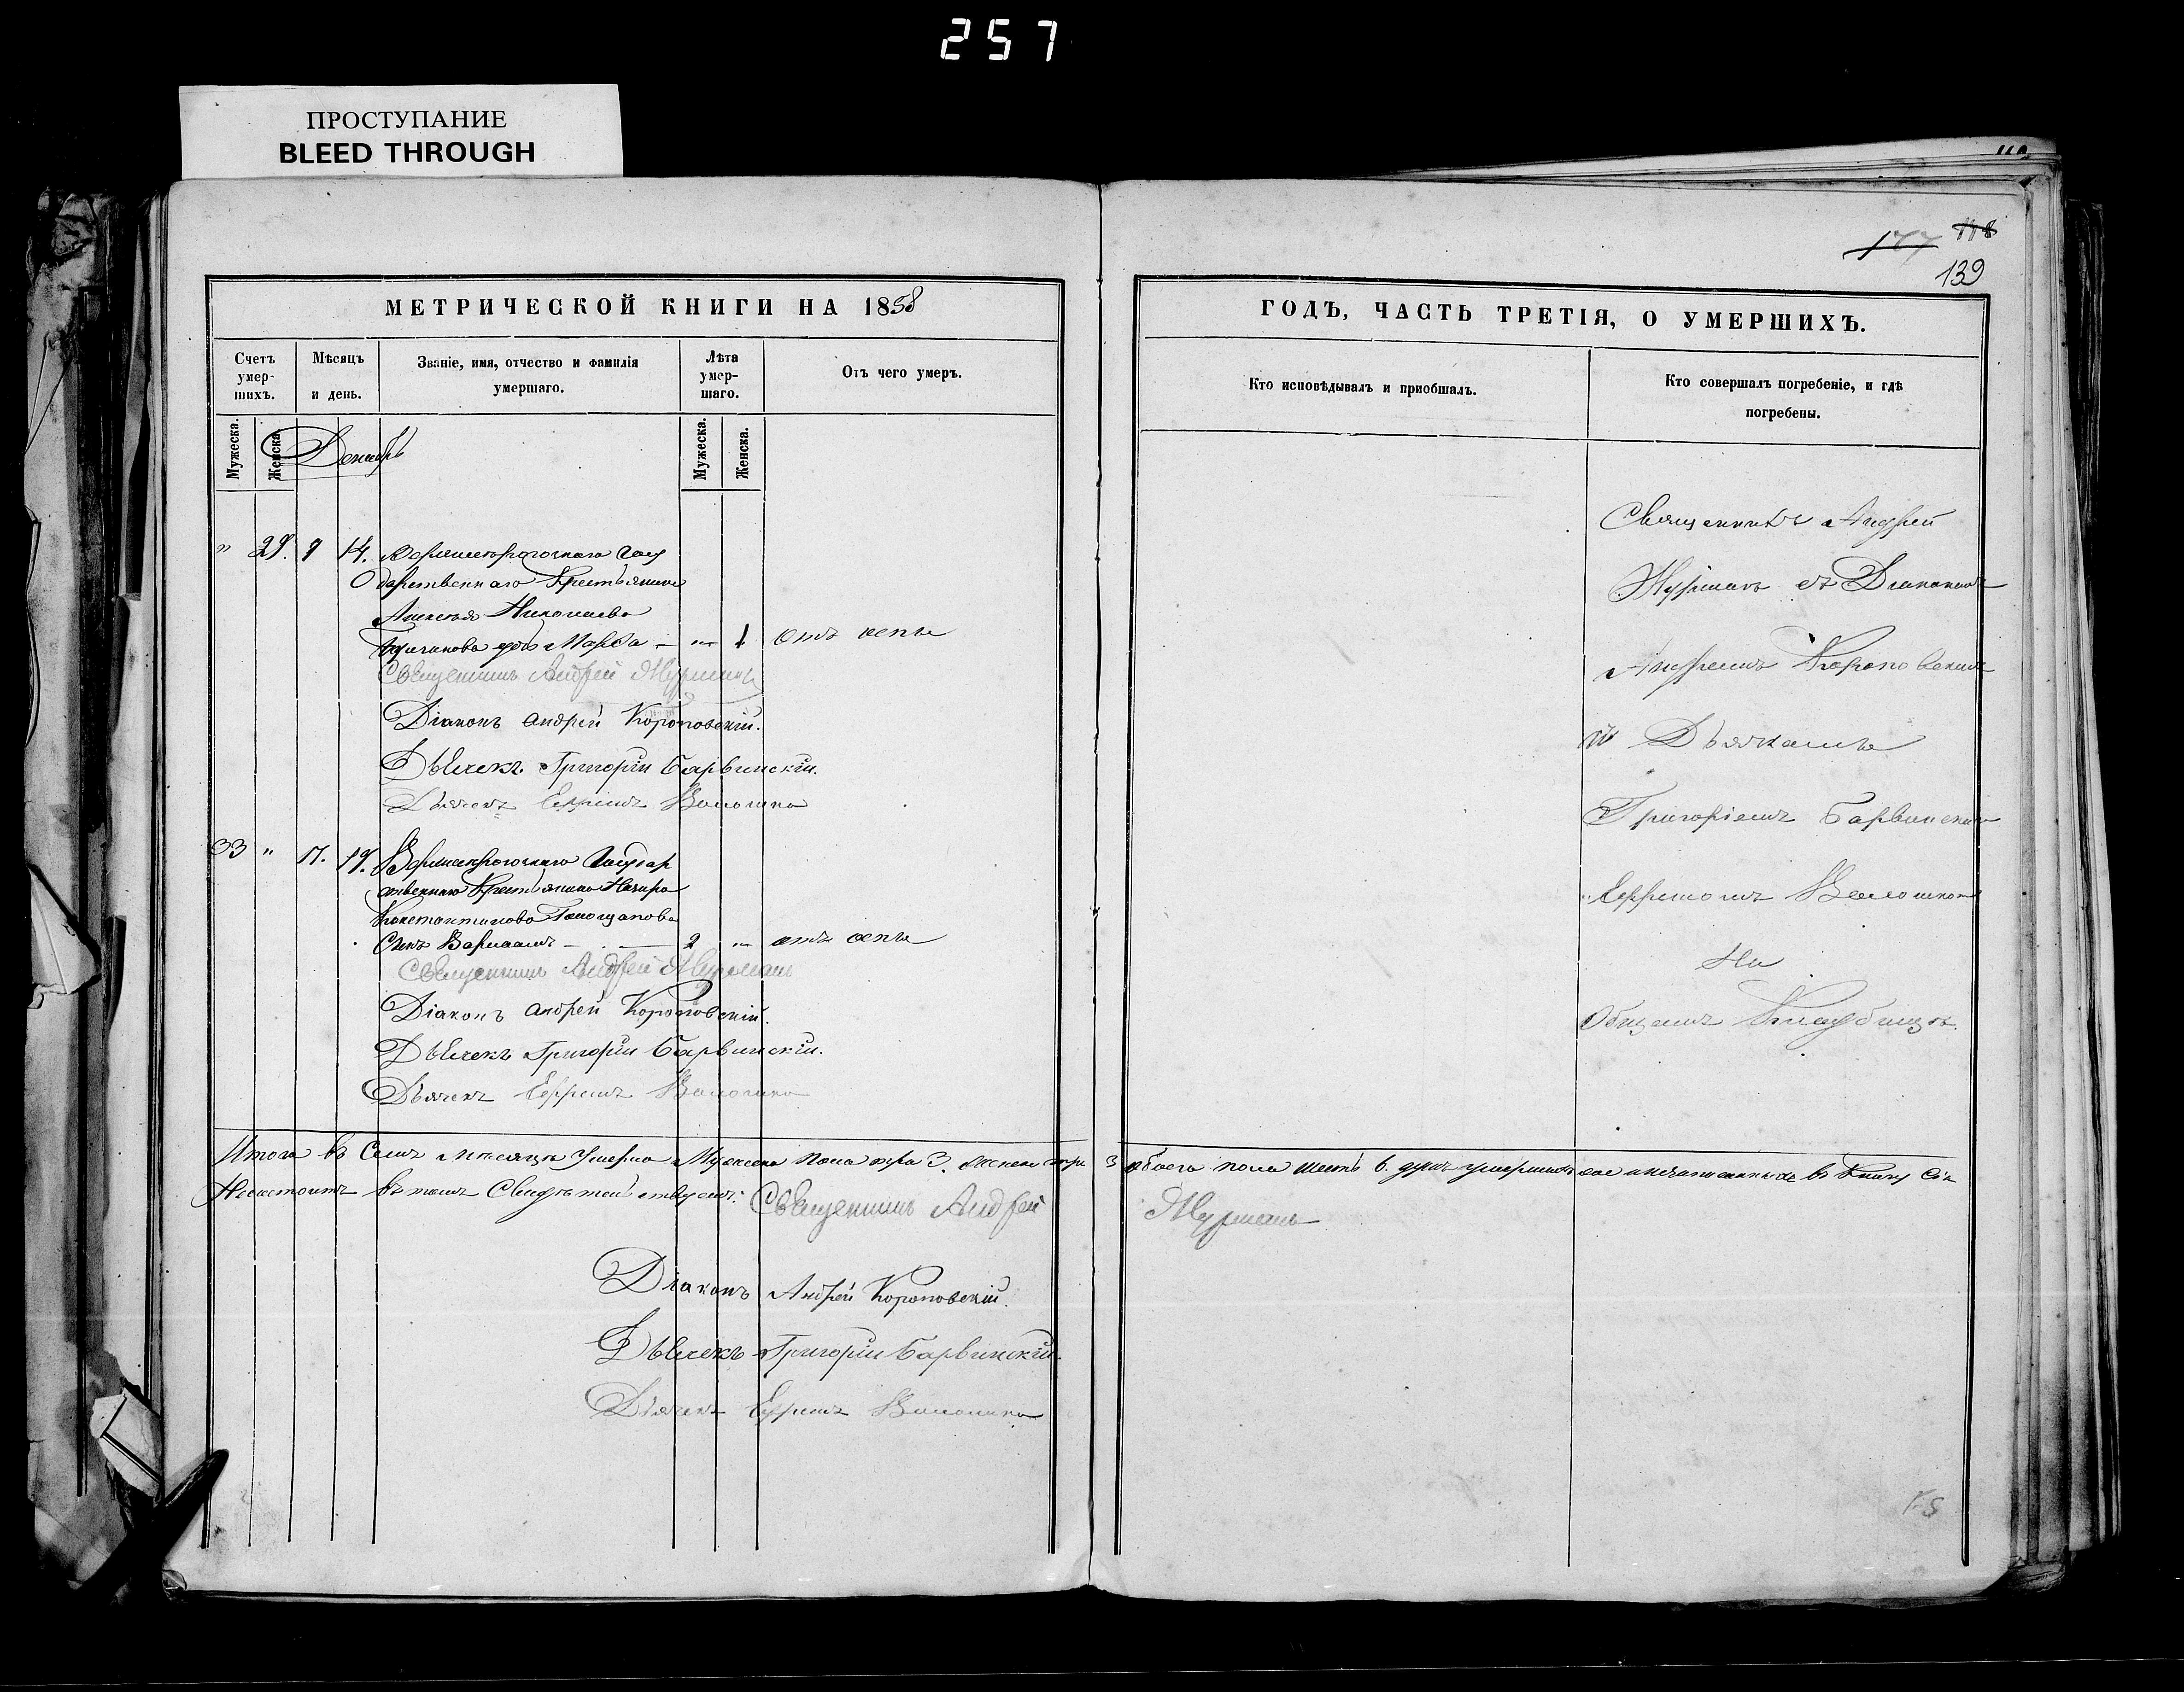 257
ПРОСТУПАНИЕ
BLEED THROUGH
118
177
139
МЕТРИЧЕСКОЙ КНИГИ НА 1858
ГОДЪ, ЧАСТЬ ТРЕТІЯ, О УМЕРШИХЪ.
Счетъ умер-шихъ.
Мѣсяцъ и день.
Званіе, имя, отчество и фамилія умершаго.
Лѣта умер-шаго.
Отъ чего умеръ.
Кто исповѣдывалъ и пріобщалъ.
Кто совершалъ погребеніе, и гдѣ погребены.
Мужеска.
Женска
Мужеска.
Женска.
Декабрь
" 29. 9 14. Госу
дарственнаго Крестьянина
Алексѣя Николаева
дочь Марѳа — " 1 отъ оспы
Священникъ Андрей
Діаконъ Андрей Короповскій.
Дьячекъ Григорій Барвинскій.
Дьячекъ Ефремъ Волошко
33 " 17. 19. Государ
ственнаго Крестьянина Назара
Константинова
Сынъ Варлаамъ — 2 " отъ оспы
Священникъ Андрей
Діаконъ Андрей Короповскій.
Дьячекъ Григорій Барвинскій.
Дьячекъ Ефремъ Волошко
Священникъ Андрей
съ Діакономъ
Андреемъ Короповскимъ
и Дьячками
Григоріемъ Барвинскимъ
Ефремомъ Волошкою
На
Общемъ Кладбищѣ.
Итого въ Семъ мѣсяцѣ Умерло Мужеска пола три 3. женска три 3 обоего пола шесть 6. душъ умершихъ въ Книгу Сію
въ томъ Свидѣтельствуемъ: Священникъ Андрей
Діаконъ Андрей Короповскій.
Дьячекъ Григорій Барвинскій.
Дьячекъ Ефремъ Волошко